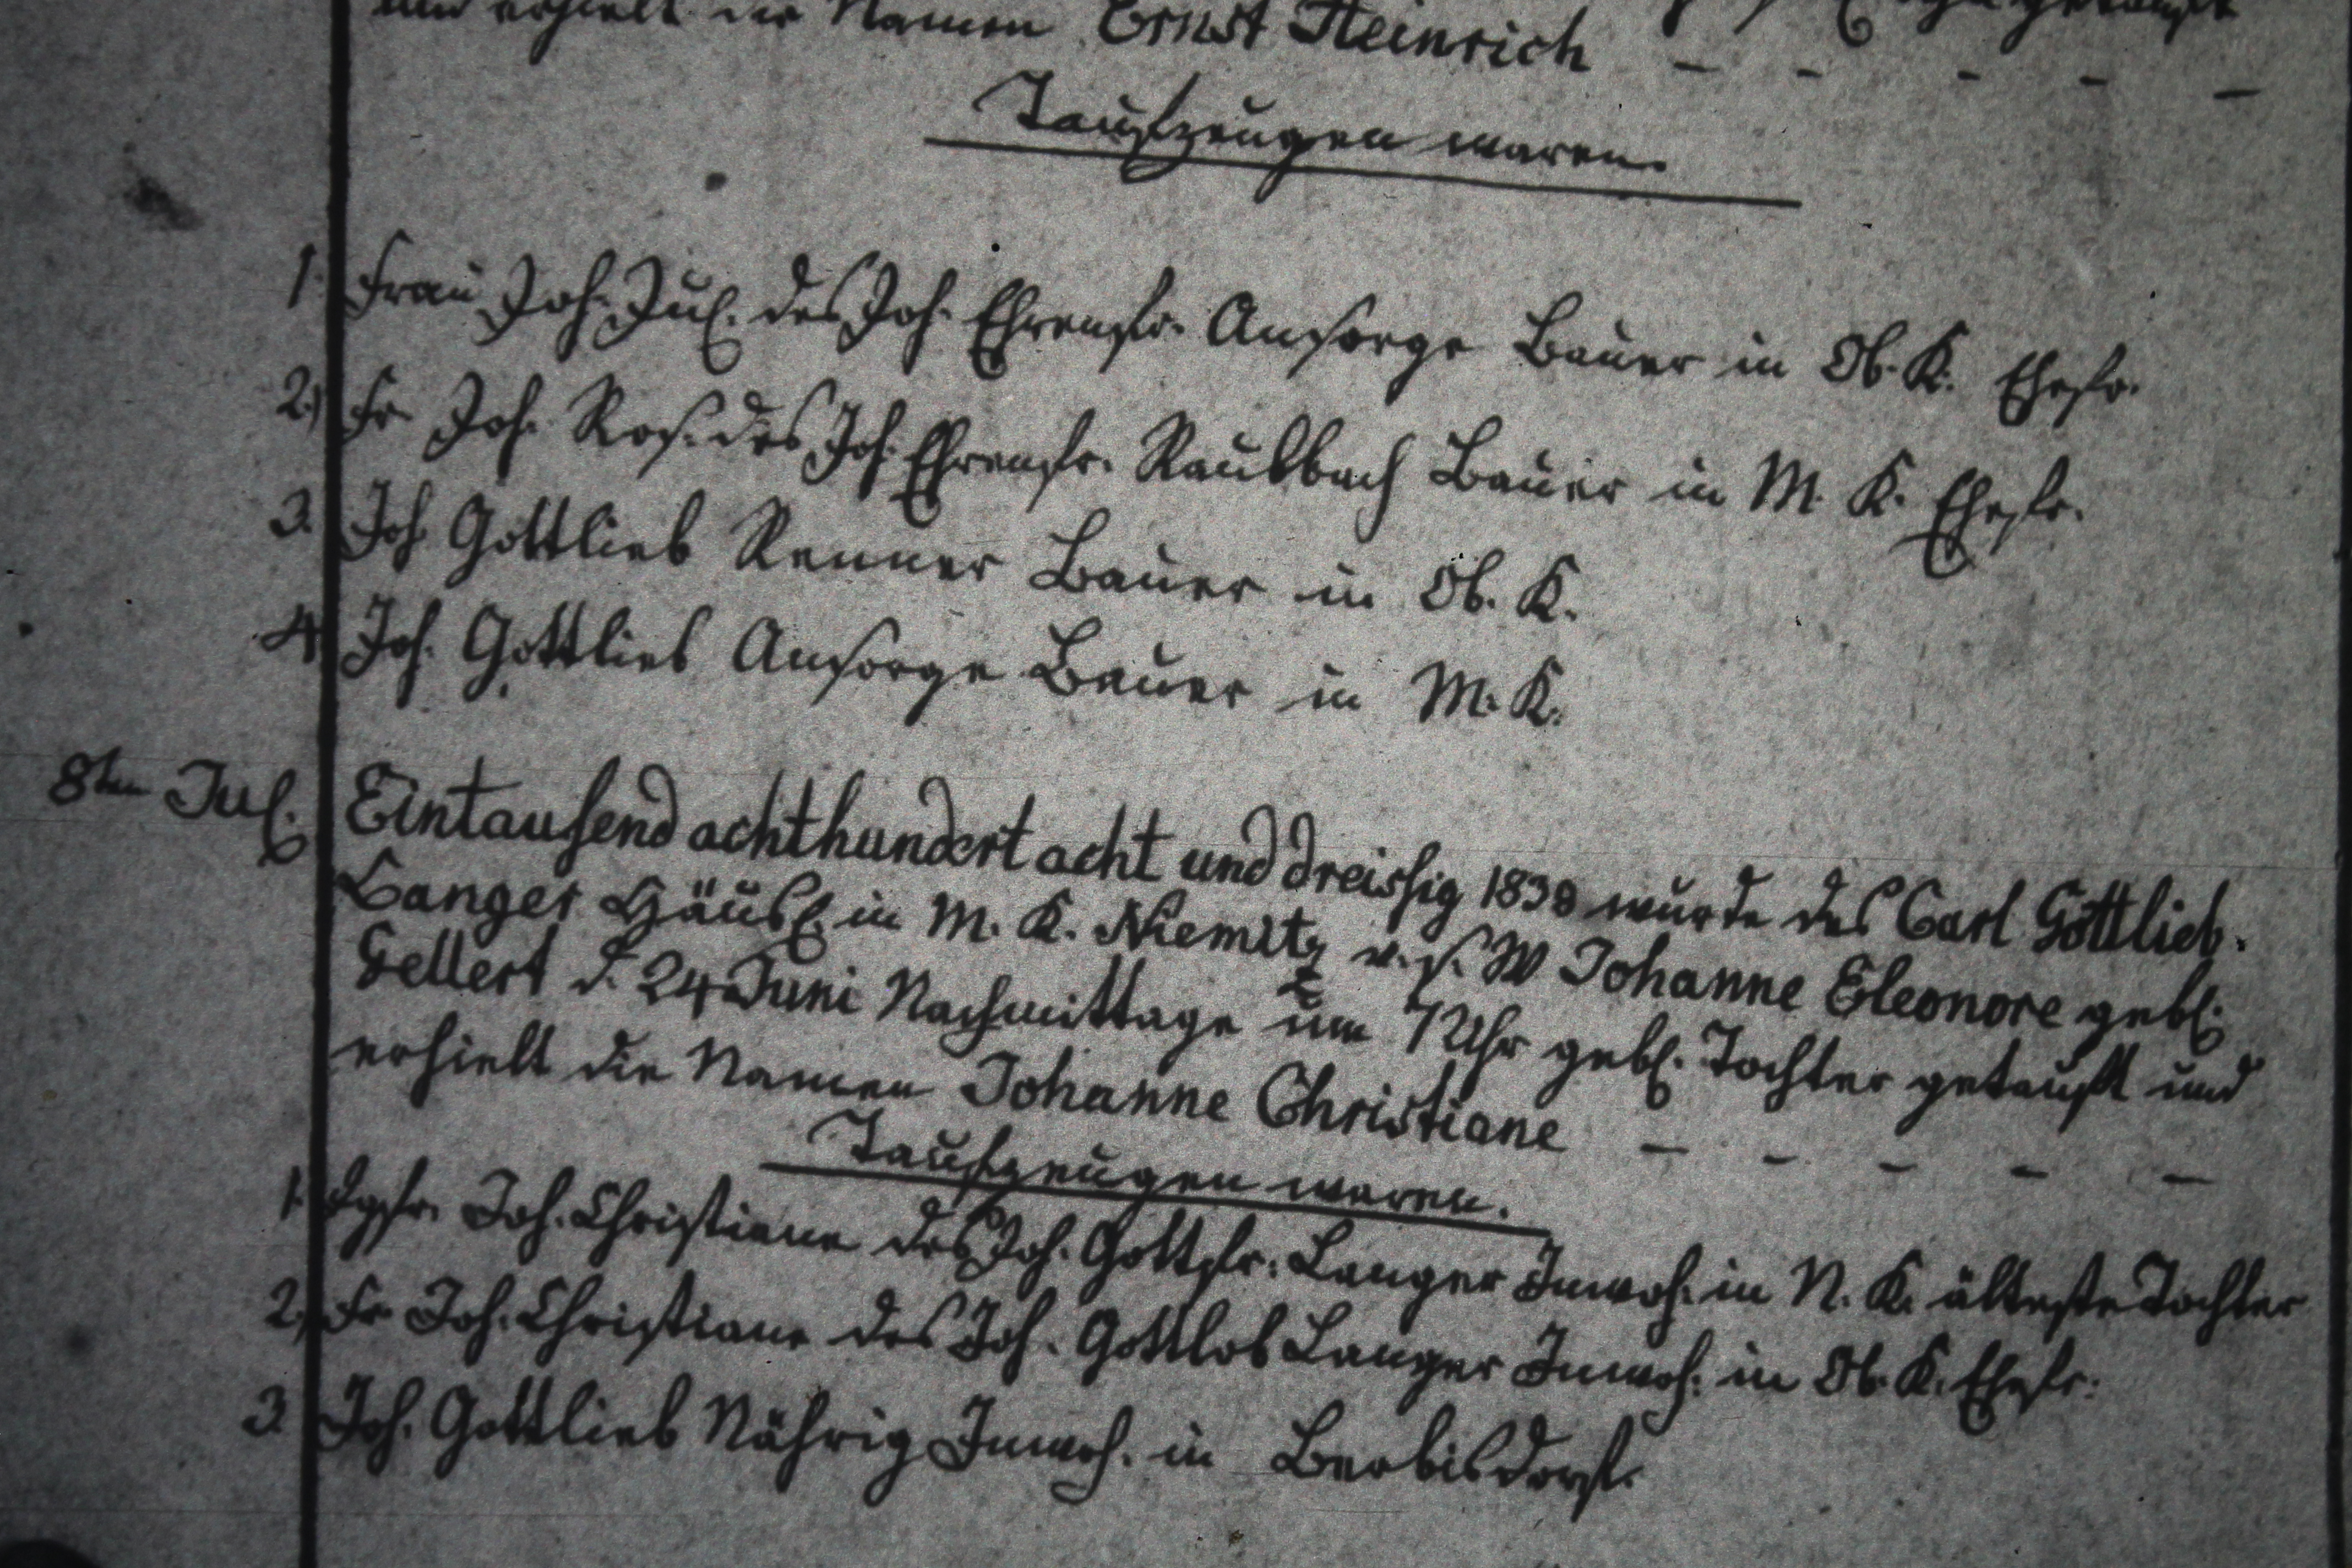 und erhielt die Namen Ernst Heinrich - - - - -
Taufzeugen waren.
1. Frau Joh. Jul. des Joh. Ehrenfr. Ansorge Bauer in Ob. K. Ehefr.
2.) Fr. Joh. Ros. des Joh. Ehrenfr. Raubbach Bauer in M. K. Ehefr.
3. Joh. Gottlieb Renner Bauer in Ob. K.
4. Joh. Gottlieb Ansorge Bauer in M. K.
8ten Jul. Eintausend achthundert acht und dreissig 1838 wurde des Carl Gottlieb
Langer Häusl. in M. K. Niemitz v. s. W Johanne Eleonore gebl.
Gellert d. 24 Juni Nachmittage um 7 Uhr gebl. Tochter getauft und
erhielt die Namen Johanne Christiane - - - - -
Taufzeugen waren.
1. Jgfr. Joh. Christiane des Joh. Gottfr. Langer Inwoh. in N. K. älteste Tochter
2. Fr. Joh. Christiane des Joh. Gottlob Langer Inwoh. in Ob. K. Ehefr.
3. Joh. Gottlieb Nährig Inwoh. in Berbisdorf.